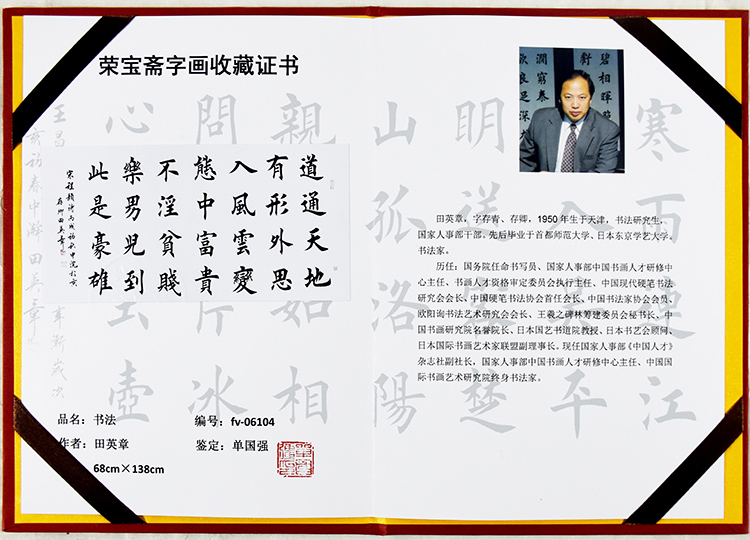 荣宝斋字画收藏证书
道通天地
有形外思
入風雲變
態中富貴
不淫貧賤
樂男兒到
此是豪雄
存卿田英章
品名：书法
编号：fv-06104
作者：田英章
鉴定：单国强
68cm×138cm
田英章，字存青、存卿，1950年生于天津，书法研究生，
国家人事部干部。先后毕业于首都师范大学、日本东京学艺大学。
书法家。
历任：国务院任命书写员、国家人事部中国书画人才研修中
心主任、书画人才资格审定委员会执行主任、中国现代硬笔书法
研究会会长、中国硬笔书法协会首任会长、中国书法家协会会员、
欧阳询书法艺术研究会会长、王羲之碑林筹建委员会秘书长、中
国书画研究院名誉院长、日本国艺书道院教授、日本书艺会顾问、
日本国际书画艺术家联盟副理事长。现任国家人事部《中国人才》
杂志社副社长，国家人事部中国书画人才研修中心主任、中国国
际书画艺术研究院终身书法家。
寒雨連江
入平
明送楚
山孤洛陽
親如相
問片冰
心玉壺